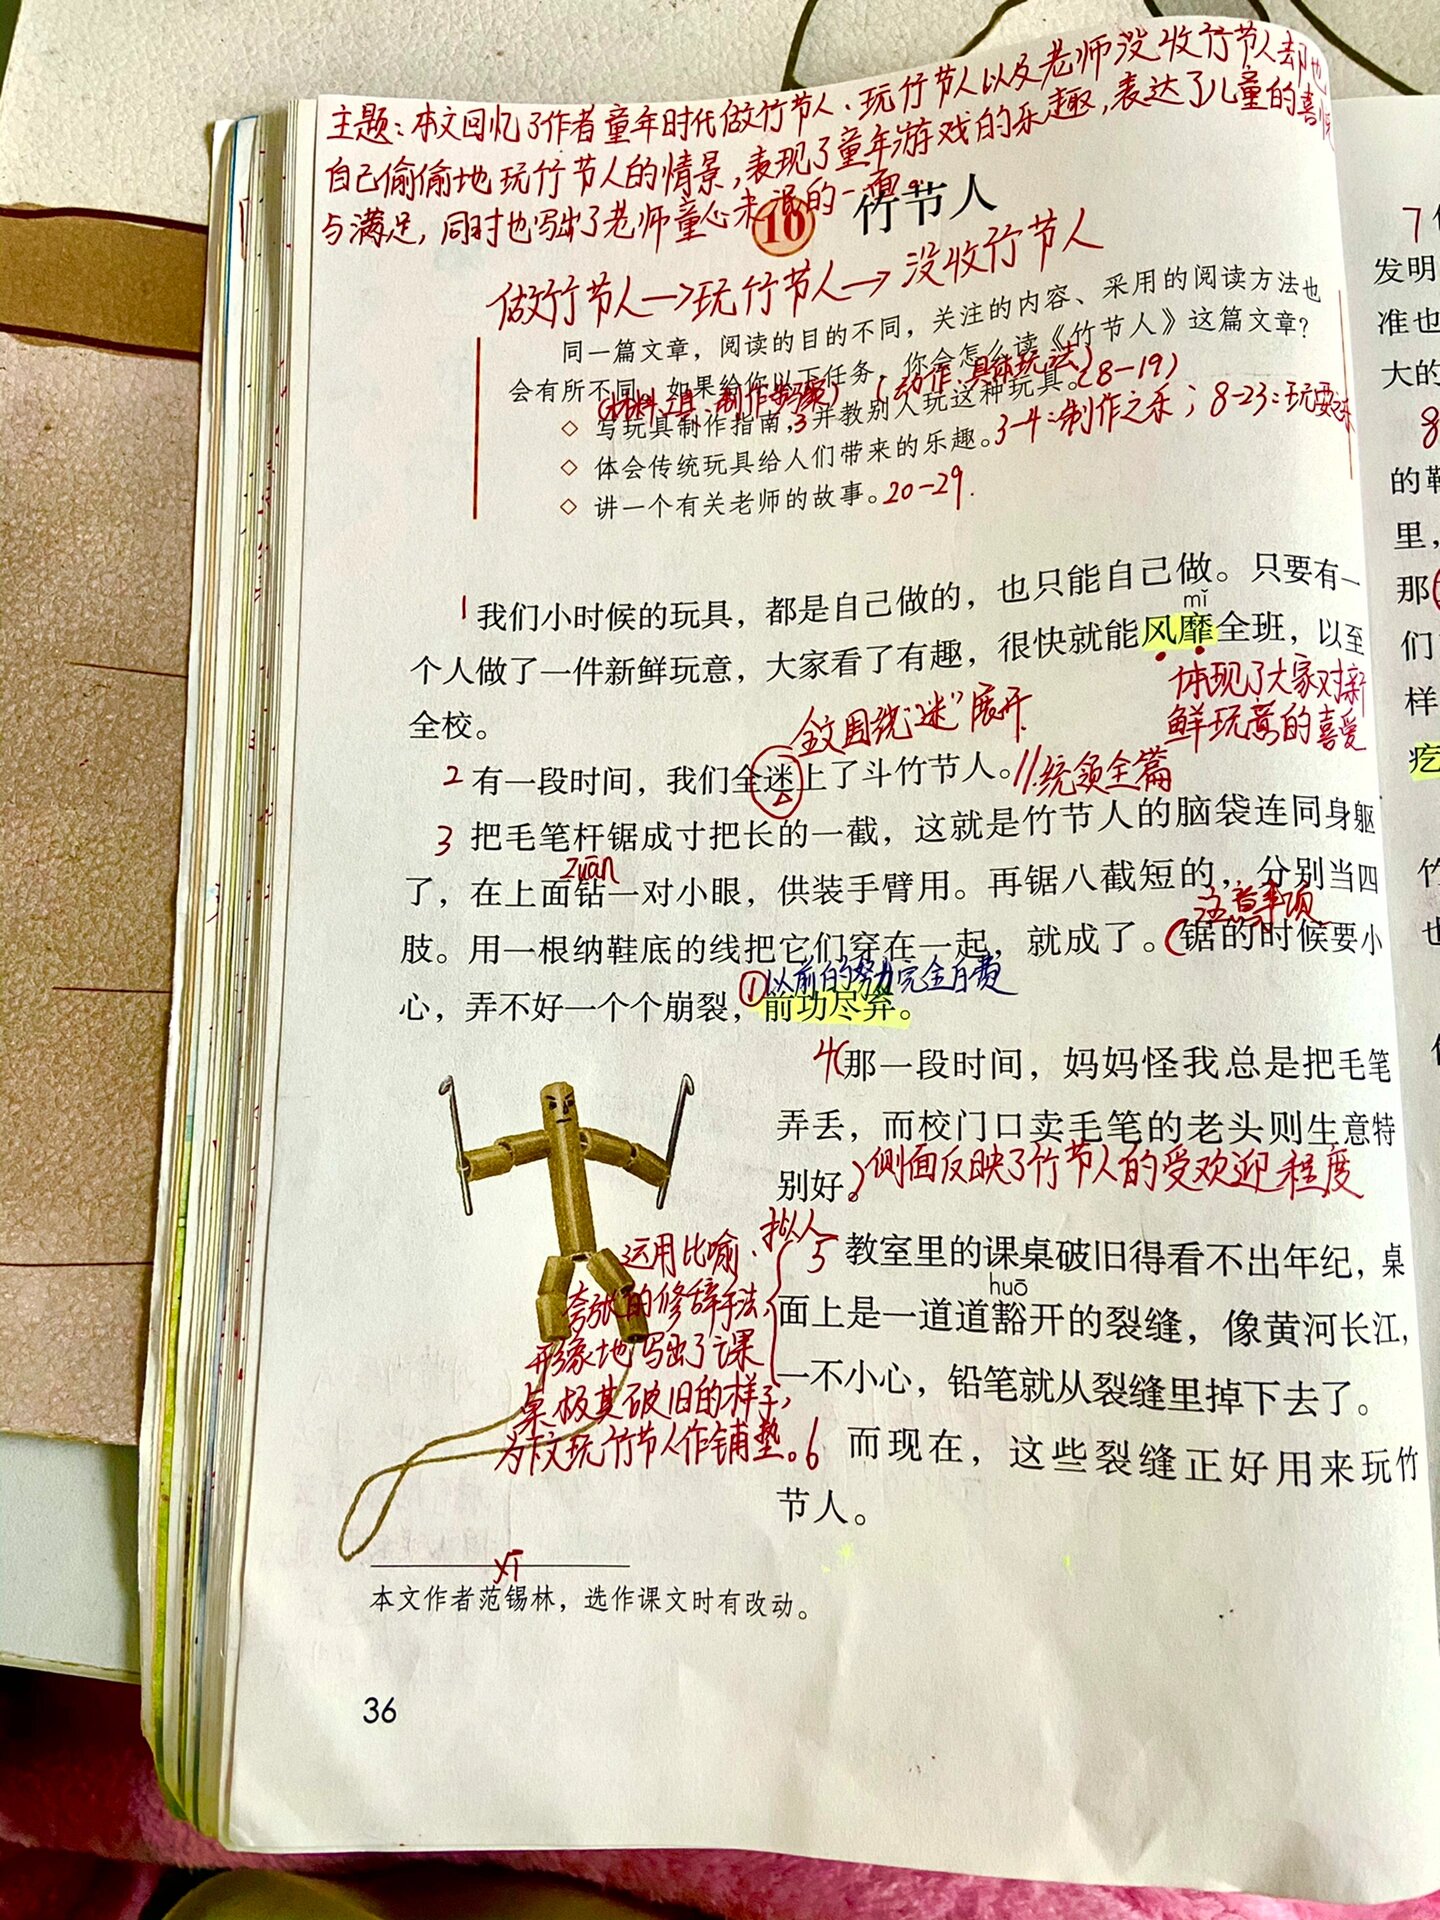 主题：本文回忆了作者童年时代做竹节人、玩竹节人以及老师没收竹节人却也
自己偷偷地玩竹节人的情景，表现了童年游戏的乐趣，表达了儿童的喜悦
与满足，同时也写出了老师童心未泯的一面。
10 竹节人
做竹节人→玩竹节人→没收竹节人
同一篇文章，阅读的目的不同，关注的内容、采用的阅读方法也
会有所不同。如果给你以下任务，你会怎么读《竹节人》这篇文章？
(材料、工具、制作步骤) (动作、具体玩法) (8-19)
◇ 写玩具制作指南，3 并教别人玩这种玩具。
3-4：制作之乐；8-23：玩耍之乐
◇ 体会传统玩具给人们带来的乐趣。
◇ 讲一个有关老师的故事。20-29.
1 我们小时候的玩具，都是自己做的，也只能自己做。只要有一
mǐ
个人做了一件新鲜玩意，大家看了有趣，很快就能风靡全班，以至
全校。
体现了大家对新
鲜玩意的喜爱
全文围绕“迷”展开
2 有一段时间，我们全迷上了斗竹节人。//统领全篇
3 把毛笔杆锯成寸把长的一截，这就是竹节人的脑袋连同身躯
zuān
了，在上面钻一对小眼，供装手臂用。再锯八截短的，分别当四
注意事项
肢。用一根纳鞋底的线把它们穿在一起，就成了。(锯的时候要小
①以前的努力完全白费
心，弄不好一个个崩裂，前功尽弃。
4(那一段时间，妈妈怪我总是把毛笔
弄丢，而校门口卖毛笔的老头则生意特
别好。)侧面反映了竹节人的受欢迎程度
5 教室里的课桌破旧得看不出年纪，桌
huō
面上是一道道豁开的裂缝，像黄河长江，
一不小心，铅笔就从裂缝里掉下去了。
运用比喻、拟人
夸张的修辞手法，
形象地写出了课
桌极其破旧的样子，
为下文玩竹节人作铺垫。
6 而现在，这些裂缝正好用来玩竹
节人。
xī
本文作者范锡林，选作课文时有改动。
36
7
发明
准也
大的
8
的鞋
里，
那
们
样
疙
竹
也